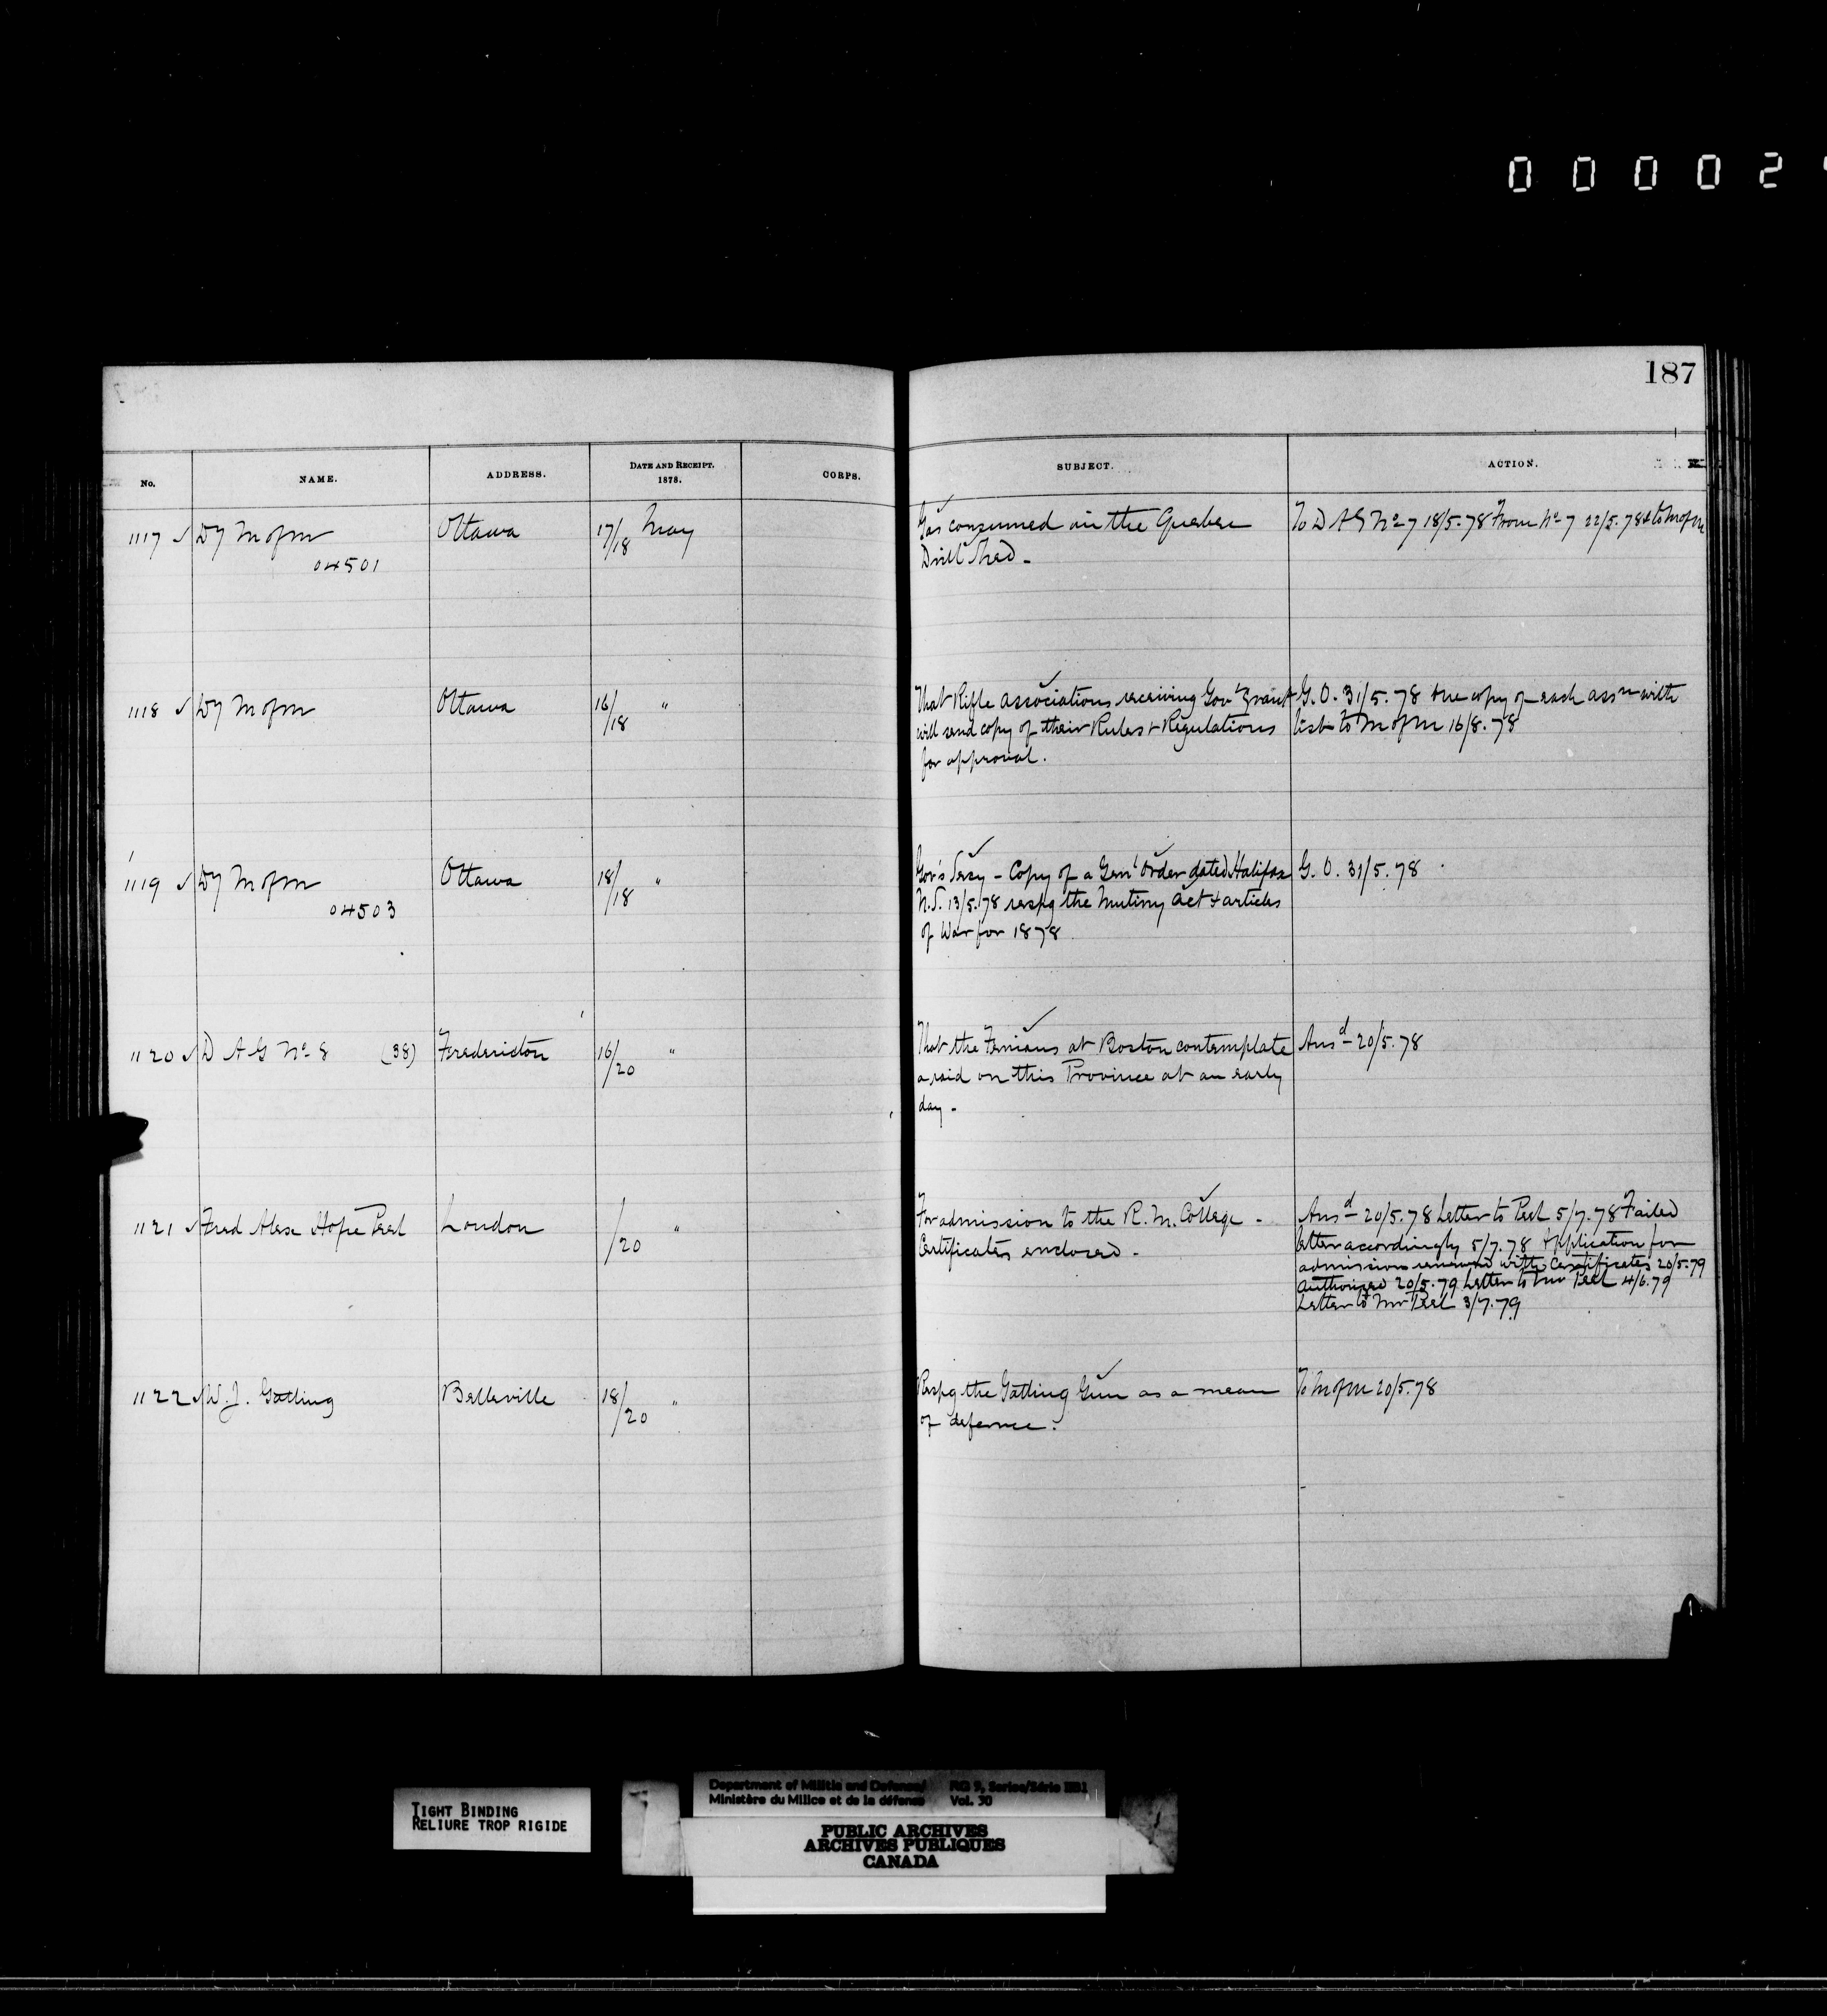 0 0 0 0 2
187
No. NAME. ADDRESS. DATE AND RECEIPT. 1878. CORPS. SUBJECT. ACTION.
1117 ✓ Dy M of M Ottawa 17/18 May Gas consumed in the Quebec To D A G No 7 18/5.78 From No 7 22/5.78 & to M of M
04501 Drill Shed.
1118 ✓ Dy M of M Ottawa 16/18 " That Rifle Associations receiving Gov't Grant G. O. 31/5.78 One copy of each assn with
will send copy of their Rules & Regulations list to M of M 16/8.78
for approval.
1119 ✓ Dy M of M Ottawa 18/18 " Gov's Secy - Copy of a Gen'l Order dated Halifax G. O. 31/5.78
04503 N.S. 13/5.78 respg the Mutiny Act & articles
of War for 1878
1120 ✓ D A G No 8 (38) Fredericton 16/20 " That the Fenians at Boston contemplate Ansd 20/5.78
a raid on this Province at an early
day -
1121 ✓ Fred Alex Hope Peel London /20 " For admission to the R. M. College - Ansd 20/5.78 Letter to Peel 5/7.78 Failed
Certificates enclosed - letter accordingly 5/7.78 Application for
admission renewed with certificates 20/5.79
authorized 20/5.79 Letter to Mr Peel 4/6.79
Letter to Mr Peel 3/7.79
1122 ✓ W. J. Gatling Belleville 18/20 " Respg the Gatling Gun as a mean To M of M 20/5.78
of defence.
TIGHT BINDING
RELIURE TROP RIGIDE
Department of Militia and Defence/ RG 9, Series/Série IIB1
Ministère du Milice et de la défense Vol. 30
PUBLIC ARCHIVES
ARCHIVES PUBLIQUES
CANADA